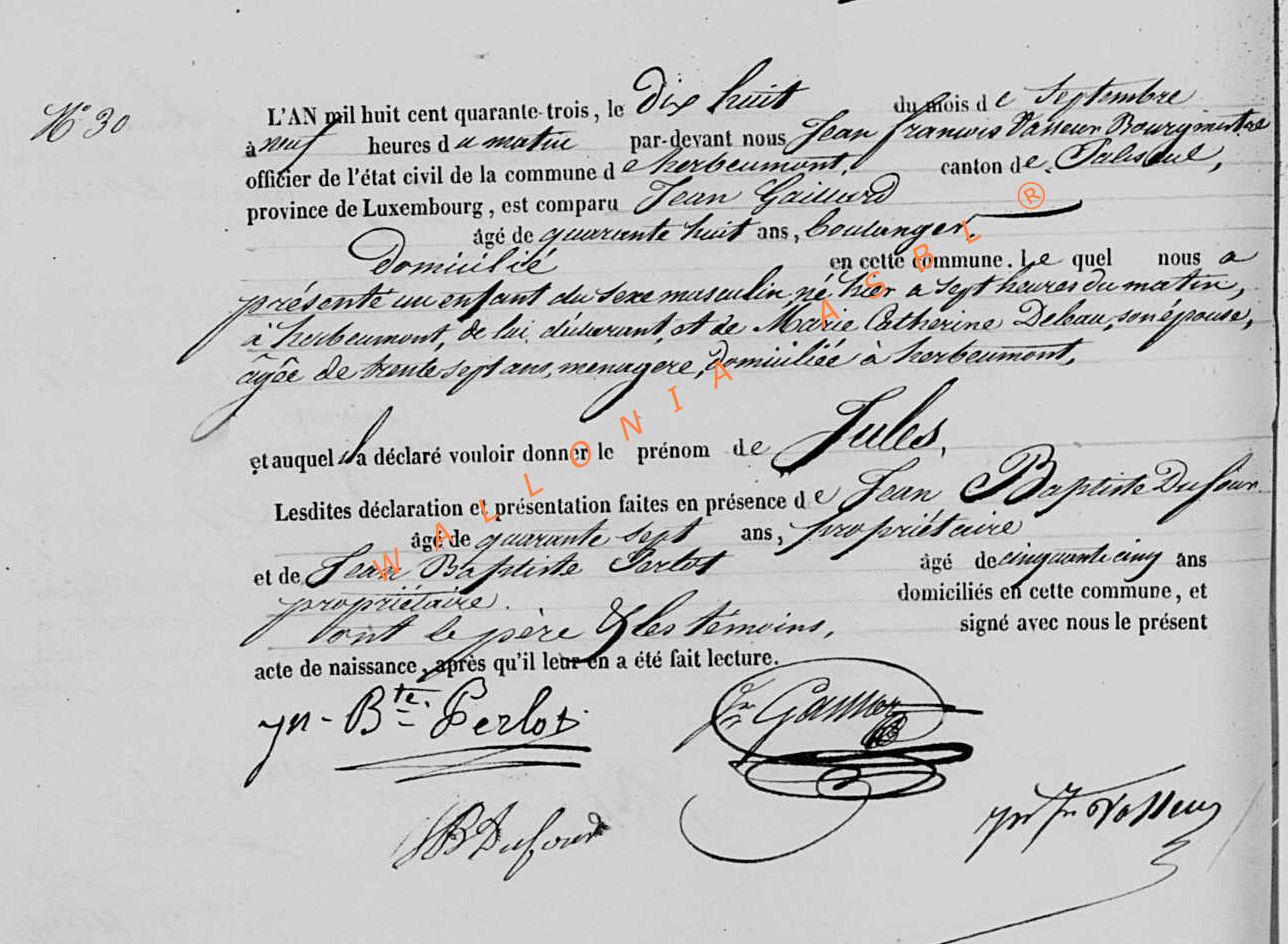 N° 30
L'AN mil huit cent quarante-trois, le Dix huit du mois de Septembre
à neuf heures du matin par-devant nous Jean francois Vasseur Bourgmestre
officier de l'état civil de la commune de herbeumont, canton de Paliseul,
province de Luxembourg, est comparu Jean Gaillard
âgé de quarante huit ans, boulanger.
Domicilié en cette commune. Le quel nous a
présenté un enfant du sexe masculin né hier à sept heures du matin,
à herbeumont, de lui déclarant, et de Marie Catherine Debau, son épouse,
âgée de trente sept ans, menagere, domiciliée à herbeumont,
et auquel il a déclaré vouloir donner le prénom de Jules,
Lesdites déclaration et présentation faites en présence de Jean Baptiste Dufour
âgé de quarante sept ans, propriétaire
et de Jean Baptiste Perlot âgé de cinquante cinq ans
propriétaire. domiciliés en cette commune, et
ont le père & les témoins, signé avec nous le présent
acte de naissance, après qu'il leur en a été fait lecture.
Jn - Bte. Perlot
JB Dufour
Jn Fr Vasseur
WALLONIA ASBL ®